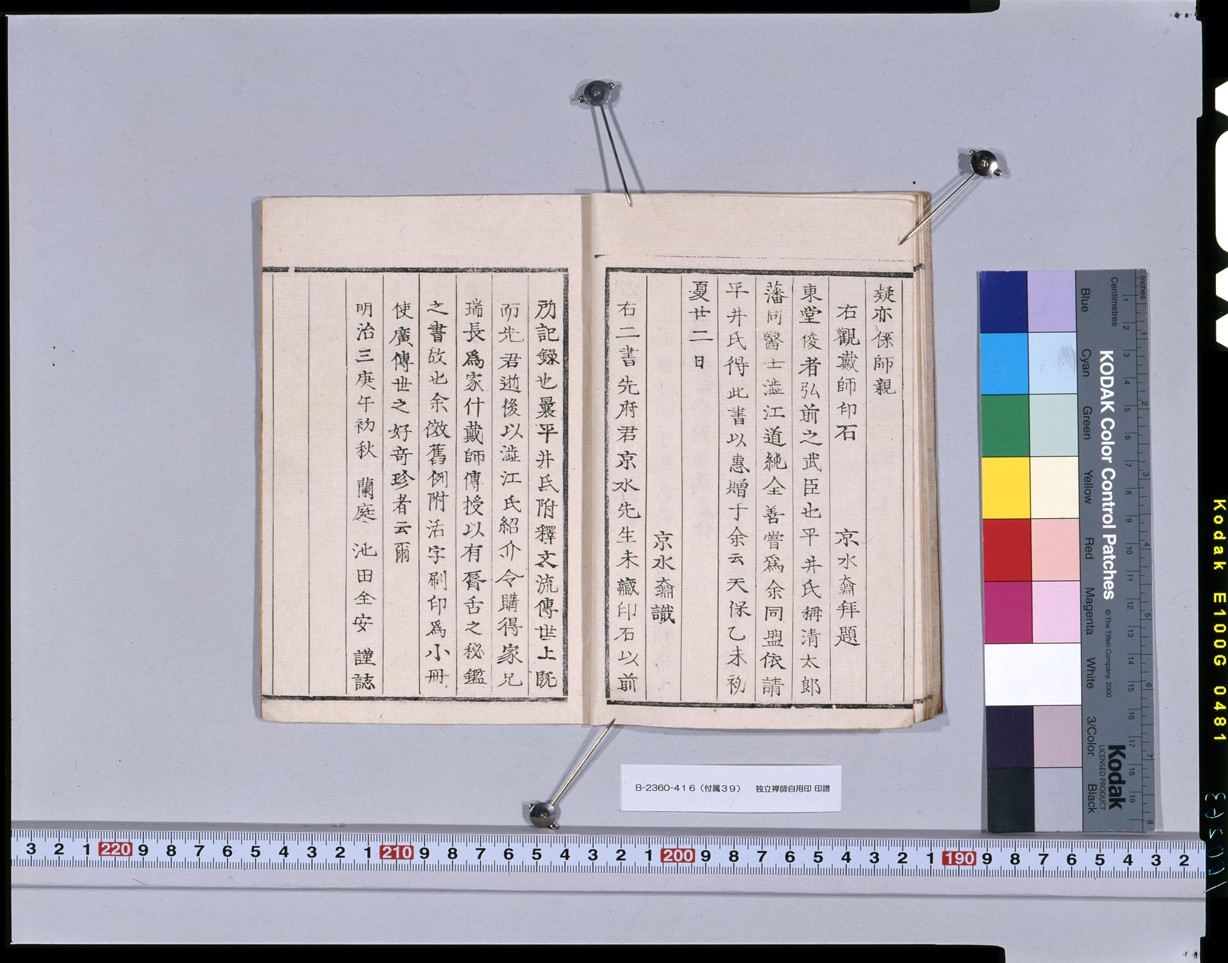 疑亦係師親
右觀戴師印石　京水奫拜題
東堂俊者弘前之武臣也平井氏稱清太郎
藩同醫士澁江道純全善嘗爲余同盟依請
平井氏得此書以惠贈于余云天保乙未初
夏廿二日
京水奫識
右二書先府君京水先生未藏印石以前
所記錄也曩平井氏附釋文流傳世上既
而先君逝後以澁江氏紹介令購得家兄
瑞長爲家什戴師傳授以有脣舌之秘鑑
之書故也余倣舊例附活字刷印爲小冊
使廣傳世之好奇珍者云爾
明治三庚午初秋　蘭庭　池田全安　謹誌
B-2360-416（付属39）　独立禅師自用印 印譜
3 2 1 220 9 8 7 6 5 4 3 2 1 210 9 8 7 6 5 4 3 2 1 200 9 8 7 6 5 4 3 2 1 190 9 8 7 6 5 4 3 2
KODAK Color Control Patches
© The Tiffen Company, 2000
Kodak
LICENSED PRODUCT
Centimetres
Inches
Blue
Cyan
Green
Yellow
Red
Magenta
White
3/Color
Black
Kodak E100G 0481